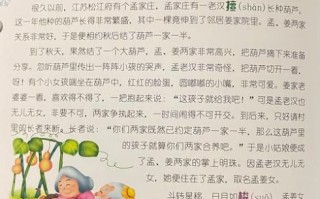 很久以前，江苏松江府有个孟家庄，孟家庄有一老汉擅（shàn）长种葫芦。
这一年他种的葫芦长得非常繁盛，其中一棵竟伸到了邻居姜家院里。孟、姜两家
关系非常好，于是便相约秋后结了葫芦一家一半。
到了秋天，果然结了一个大葫芦，孟、姜两家非常高兴，把葫芦摘下来准备
分享。忽听葫芦里传出一阵阵小孩的哭声，孟老汉非常奇怪，把葫芦切开一看，
呀！有个小女孩端坐在葫芦中，红红的脸蛋，圆嘟嘟的小嘴，非常可爱。姜家老
婆婆一看，喜欢得不得了，一把抱起来说：“这孩子就给我吧！”可是孟老汉也
无儿无女，非要不可，两家争执起来，一时间闹得不可开交。到后来，只好请村
里的长者来断。长者说：“你们两家既然已约定葫芦一家一半，那么这葫芦里
的孩子就算你们两家合养吧。”于是小姑娘便成了
孟、姜两家的掌上明珠，因孟老汉无儿无
女，她便住在了孟家，取名孟姜女。
斗转星移，日月如梭（suō），孟姜女